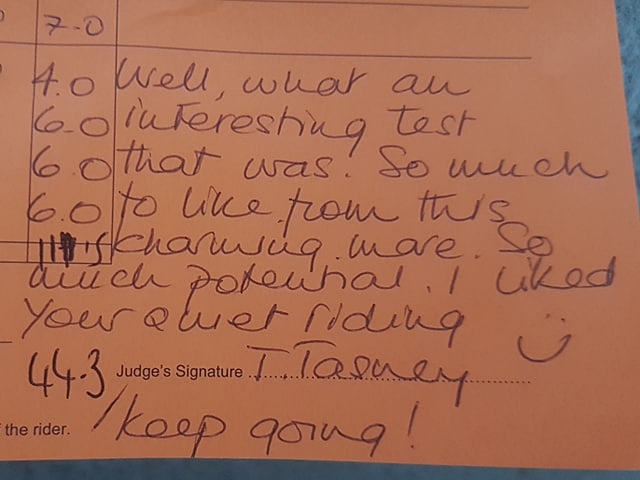 7.0
4.0 Well, what an
6.0 interesting test
6.0 that was! So much
6.0 to like from this
charming mare. So
much potential. I liked
your quiet riding
44.3 Judge's Signature T. Tasney
the rider. / keep going!